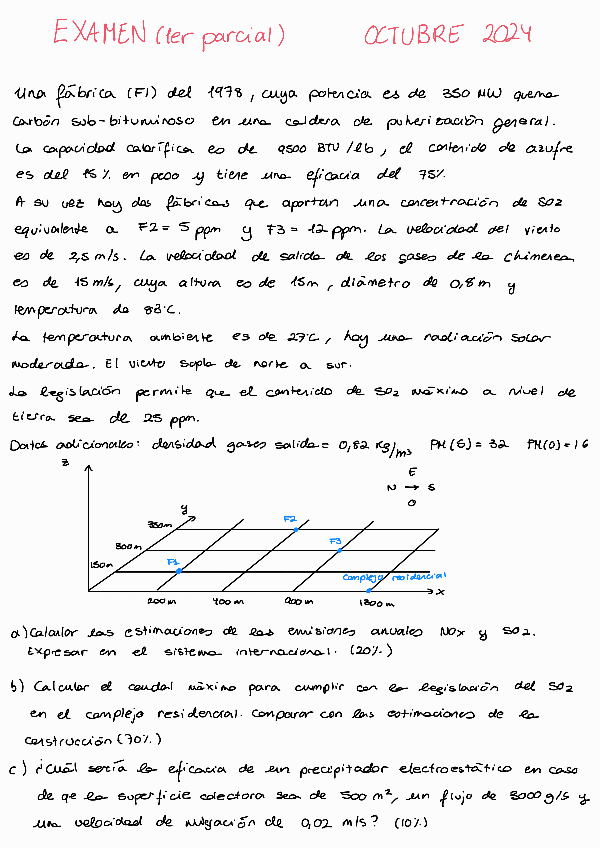 EXAMEN (1er parcial) OCTUBRE 2024
Una fábrica (F1) del 1978, cuya potencia es de 350 MW quema
carbón sub-bituminoso en una caldera de pulverización general.
La capacidad calorífica es de 9500 BTU/lb, el contenido de azufre
es del 15% en peso y tiene una eficacia del 75%.
A su vez hay dos fábricas que aportan una concentración de SO2
equivalente a F2 = 5 ppm y F3 = 12 ppm. La velocidad del viento
es de 2,5 m/s. La velocidad de salida de los gases de la chimenea
es de 15 m/s, cuya altura es de 15m, diámetro de 0,8 m y
temperatura de 88°C.
La temperatura ambiente es de 27°C, hay una radiación solar
moderada. El viento sopla de norte a sur.
La legislación permite que el contenido de SO2 máximo a nivel de
tierra sea de 25 ppm.
Datos adicionales: densidad gases salida = 0,82 kg/m3 PM(S) = 32 PM(O) = 16
z
E
N → S
O
y
350m
300m
150m
F2
F3
F1
complejo residencial
x
200m 400m 900m 1300m
a) Calcular las estimaciones de las emisiones anuales NOx y SO2.
Expresar en el sistema internacional. (20%)
b) Calcular el caudal máximo para cumplir con la legislación del SO2
en el complejo residencial. Comparar con las estimaciones de la
construcción (70%)
c) ¿Cuál sería la eficacia de un precipitador electroestático en caso
de qe la superficie colectora sea de 500 m2, un flujo de 3000 g/s y
una velocidad de migración de 0,02 m/s? (10%)